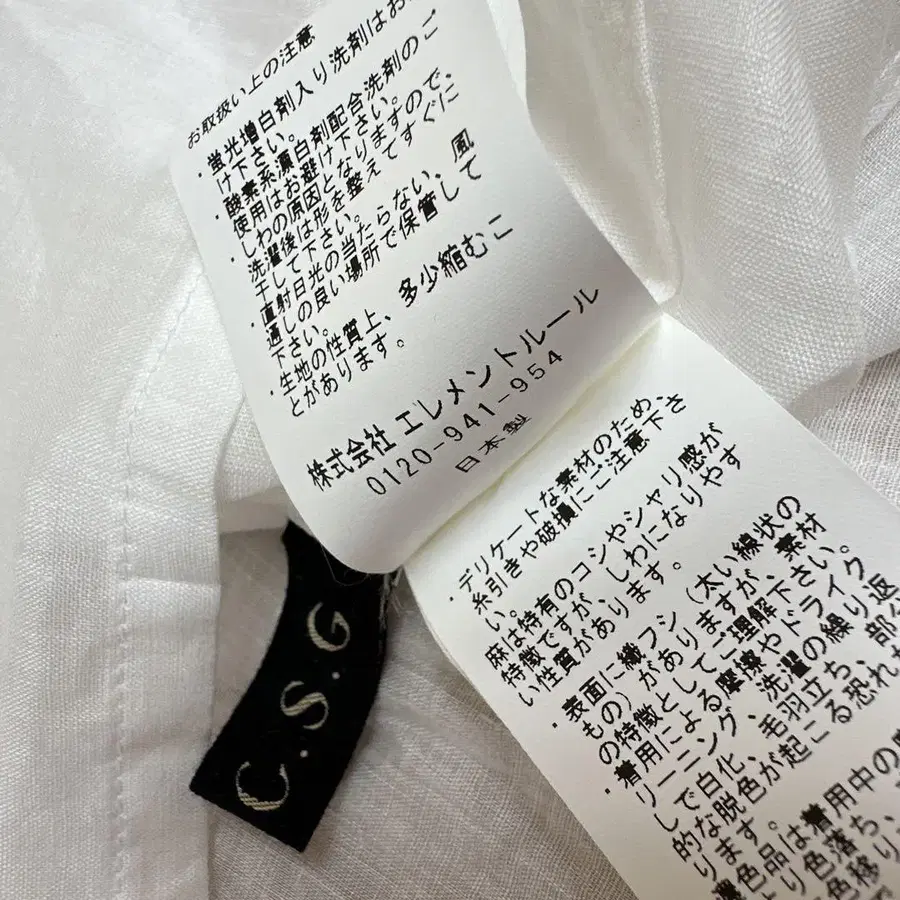 お取扱い上の注意
・蛍光増白剤入り洗剤はお
け下さい。
・酸素系漂白剤配合洗剤のご
使用はお避け下さい。
しわの原因となりますので、
・洗濯後は形を整えてすぐに
干して下さい。
・直射日光の当たらない、風
通しの良い場所で保管して
下さい。
・生地の性質上、多少縮むこ
とがあります。
株式会社 エレメントルール
0120-941-954
日本製
・デリケートな素材のため、
糸引きや破損にご注意下さ
い。
麻は特有のコシやシャリ感が
特徴ですが、しわになりやす
い性質があります。
・表面に織フシ(太い線状の
もの)がありますが、素材
の特徴としてご理解下さい。
・着用による摩擦やドライク
リーニング、洗濯の繰り返
しで白化、毛羽立ち、部分
的な脱色が起こる恐れ
ります。
・濃色品は着用中の
より色落ち、
色移り
C.S.G